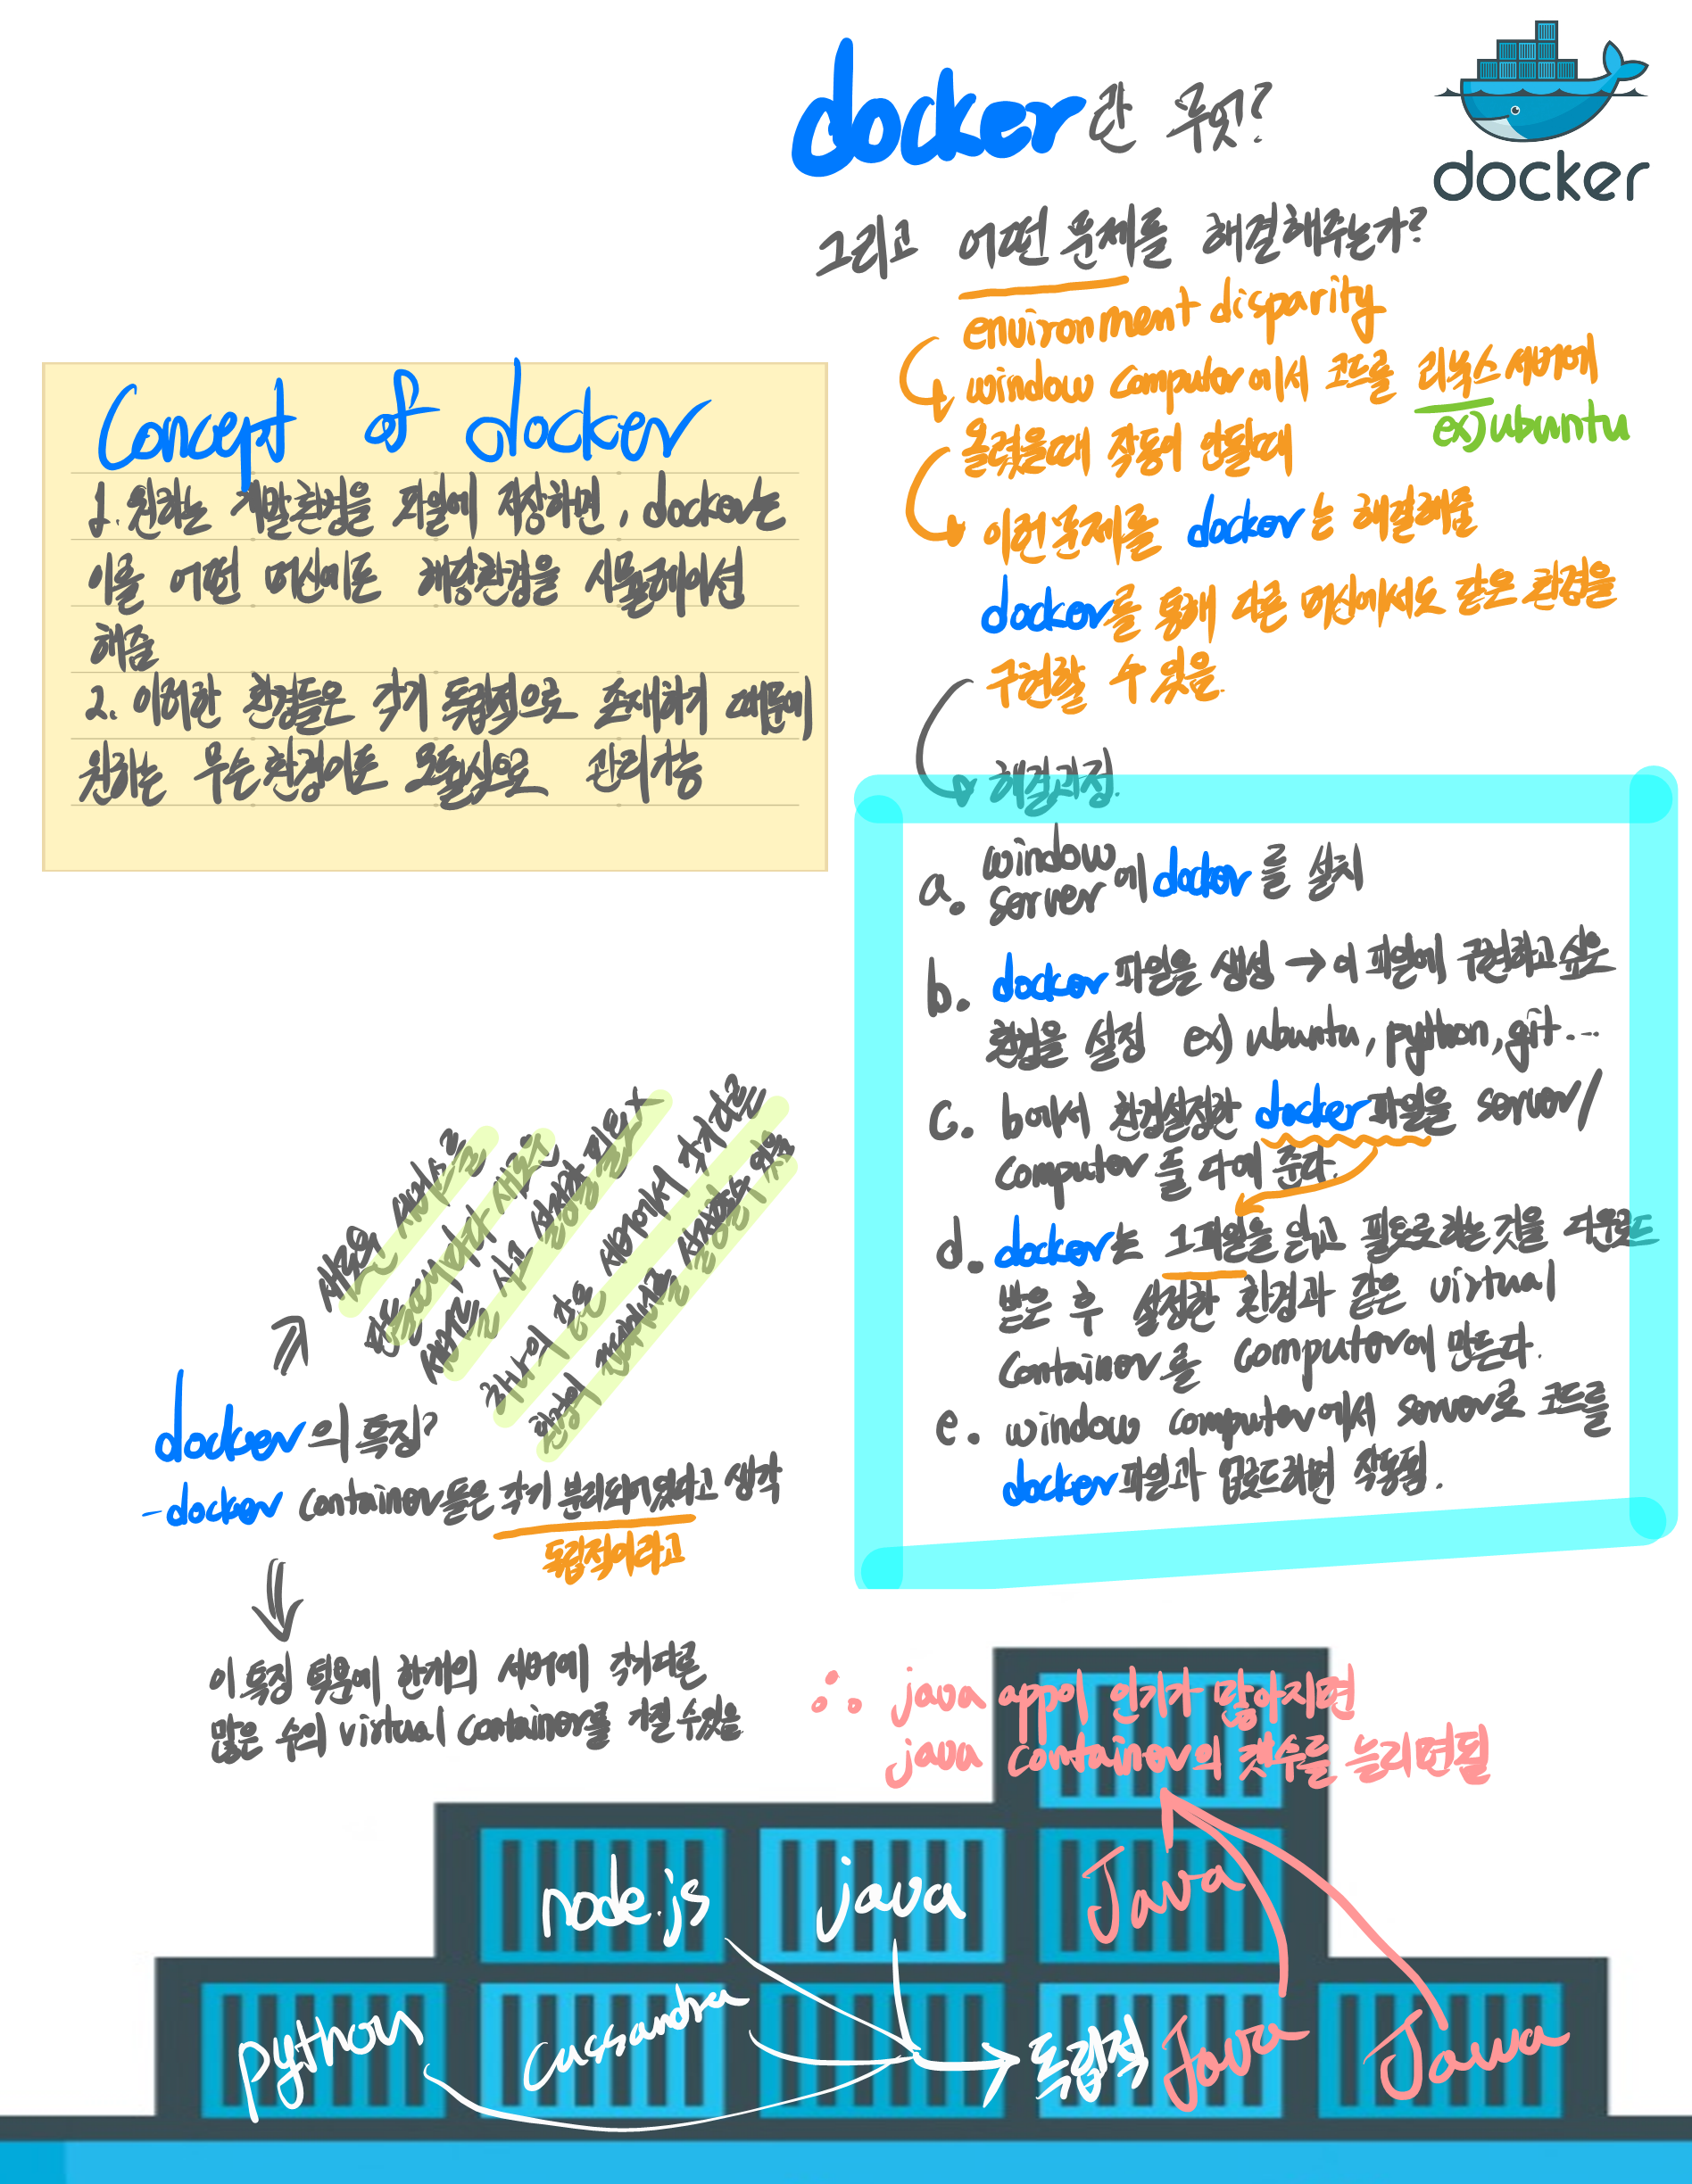 docker란 무엇?
docker
그리고 어떤 문제를 해결해주는가?
environment disparity
window computer에서 코드를 리눅스 서버에
ex) ubuntu
올렸을때 작동이 안될때
이런문제를 docker는 해결해줌
docker를 통해 다른 머신에서도 같은 환경을
구현할 수 있음.
해결과정.
a. window server에 docker를 설치
b. docker 파일을 생성 → 이 파일에 구현하고 싶은
환경을 설정 ex) ubuntu, python, git...
c. b에서 환경설정한 docker 파일을 server/
computer 들 다에 준다.
d. docker는 그 파일을 읽고 필요로하는 것을 다운로드
받은 후 설정한 환경과 같은 virtual
container를 computer에 만든다.
e. window computer에서 server로 코드를
docker 파일과 업로드하면 작동됨.
Concept of docker
1. 원하는 개발환경을 파일에 저장하면, docker는
이를 어떤 머신에도 해당환경을 시뮬레이션
해줌
2. 이러한 환경들은 각기 독립적으로 존재하기 때문에
원하는 무슨 환경이든 모듈식으로 관리가능
⇒ 새로운 서비스를
만들때마다 새로운
서버를 사고 설정할 필요X
하나의 같은 서버에서 각기다른
환경의 컨테이너를 설정할수 있음
docker의 특징?
- docker container들은 각기 분리되어있다고 생각
독립적이라고
이 특징 덕분에 한개의 서버에 각기다른
많은 수의 virtual container를 가질 수있음
∴ java app이 인기가 많아지면
java container의 갯수를 늘리면됨
node.js java Java
python cassandra 독립적 Java Java